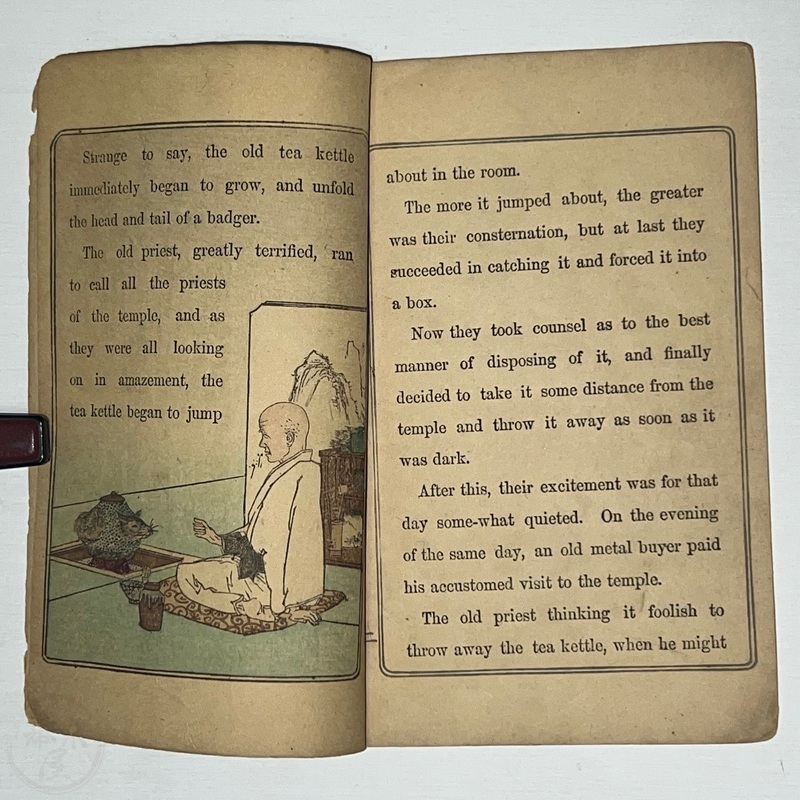 Strange to say, the old tea kettle
immediately began to grow, and unfold
the head and tail of a badger.
The old priest, greatly terrified, ran
to call all the priests
of the temple, and as
they were all looking
on in amazement, the
tea kettle began to jump
about in the room.
The more it jumped about, the greater
was their consternation, but at last they
succeeded in catching it and forced it into
a box.
Now they took counsel as to the best
manner of disposing of it, and finally
decided to take it some distance from the
temple and throw it away as soon as it
was dark.
After this, their excitement was for that
day some-what quieted. On the evening
of the same day, an old metal buyer paid
his accustomed visit to the temple.
The old priest thinking it foolish to
throw away the tea kettle, when he might